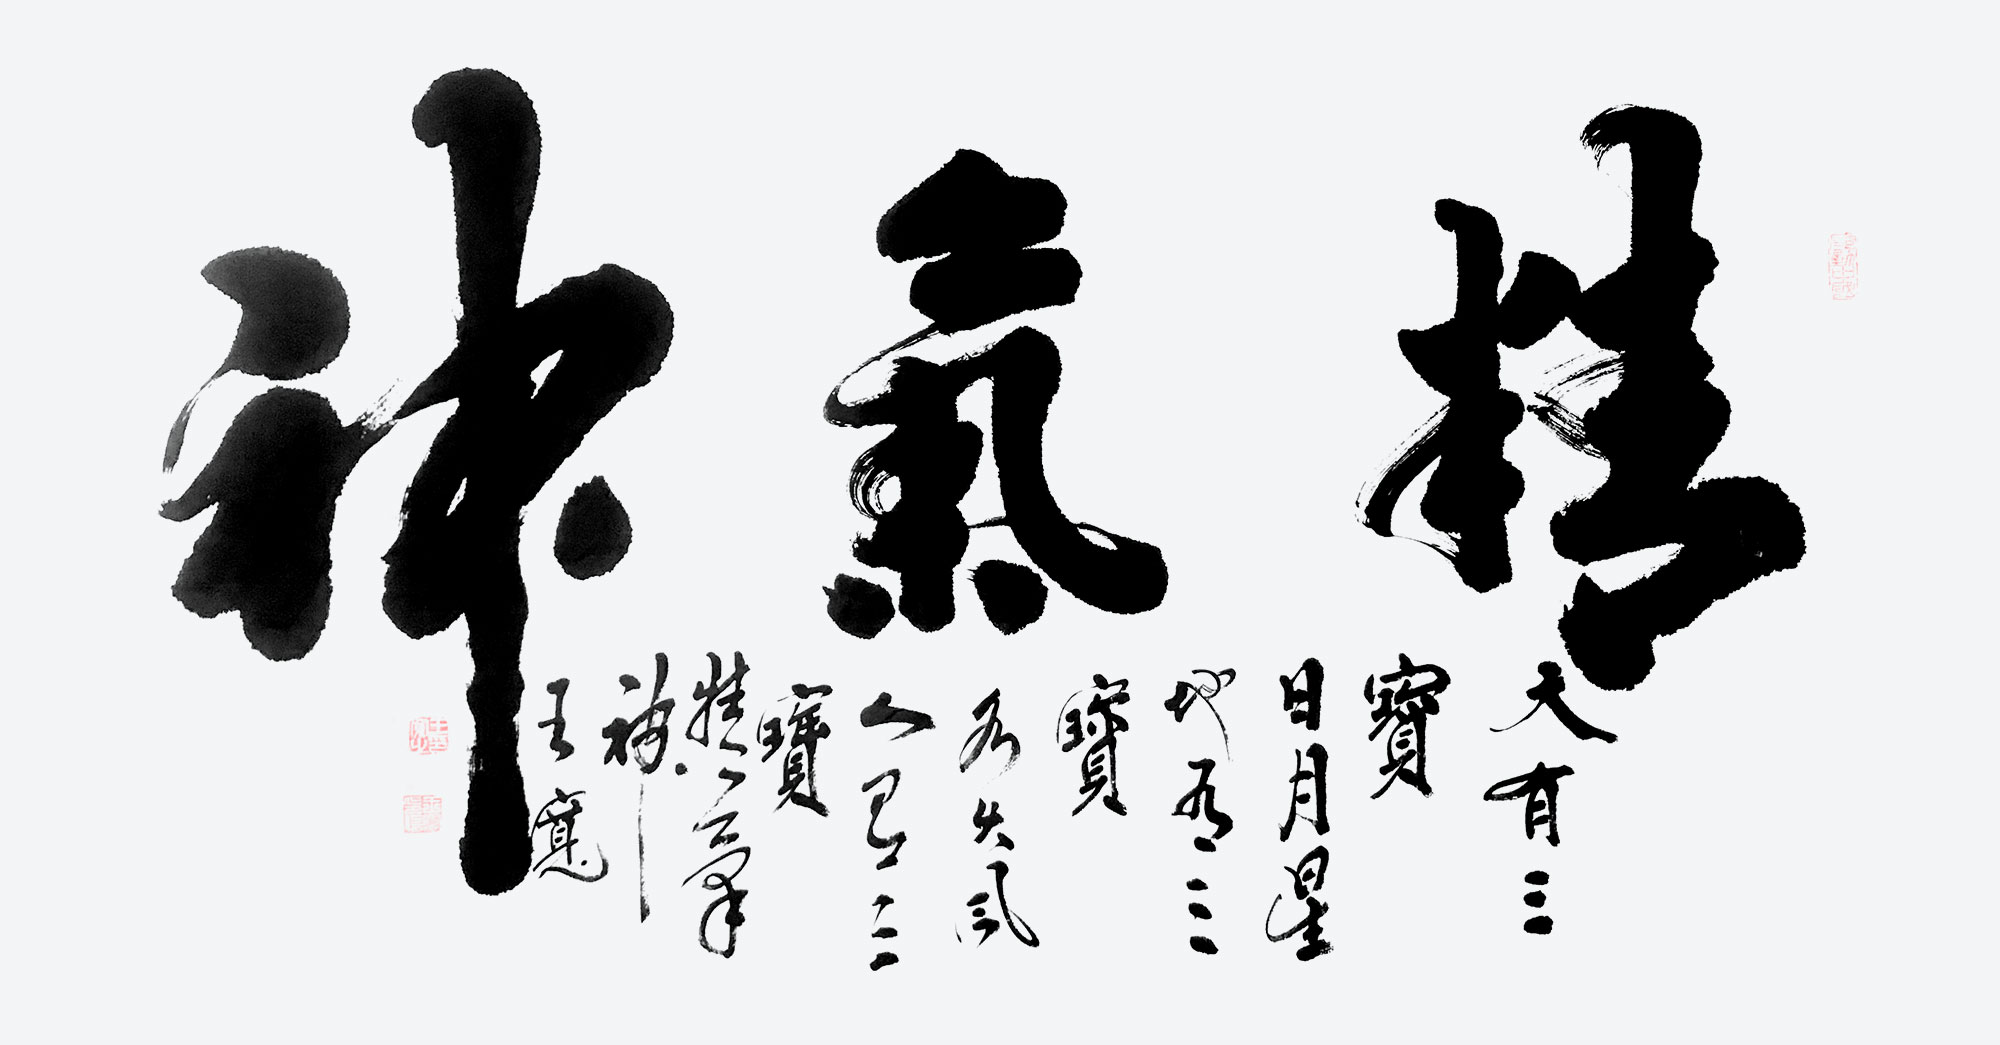 精氣神
天有三
寶
日月星
地有三
寶
水火風
人有三
寶
精氣
神
王寬